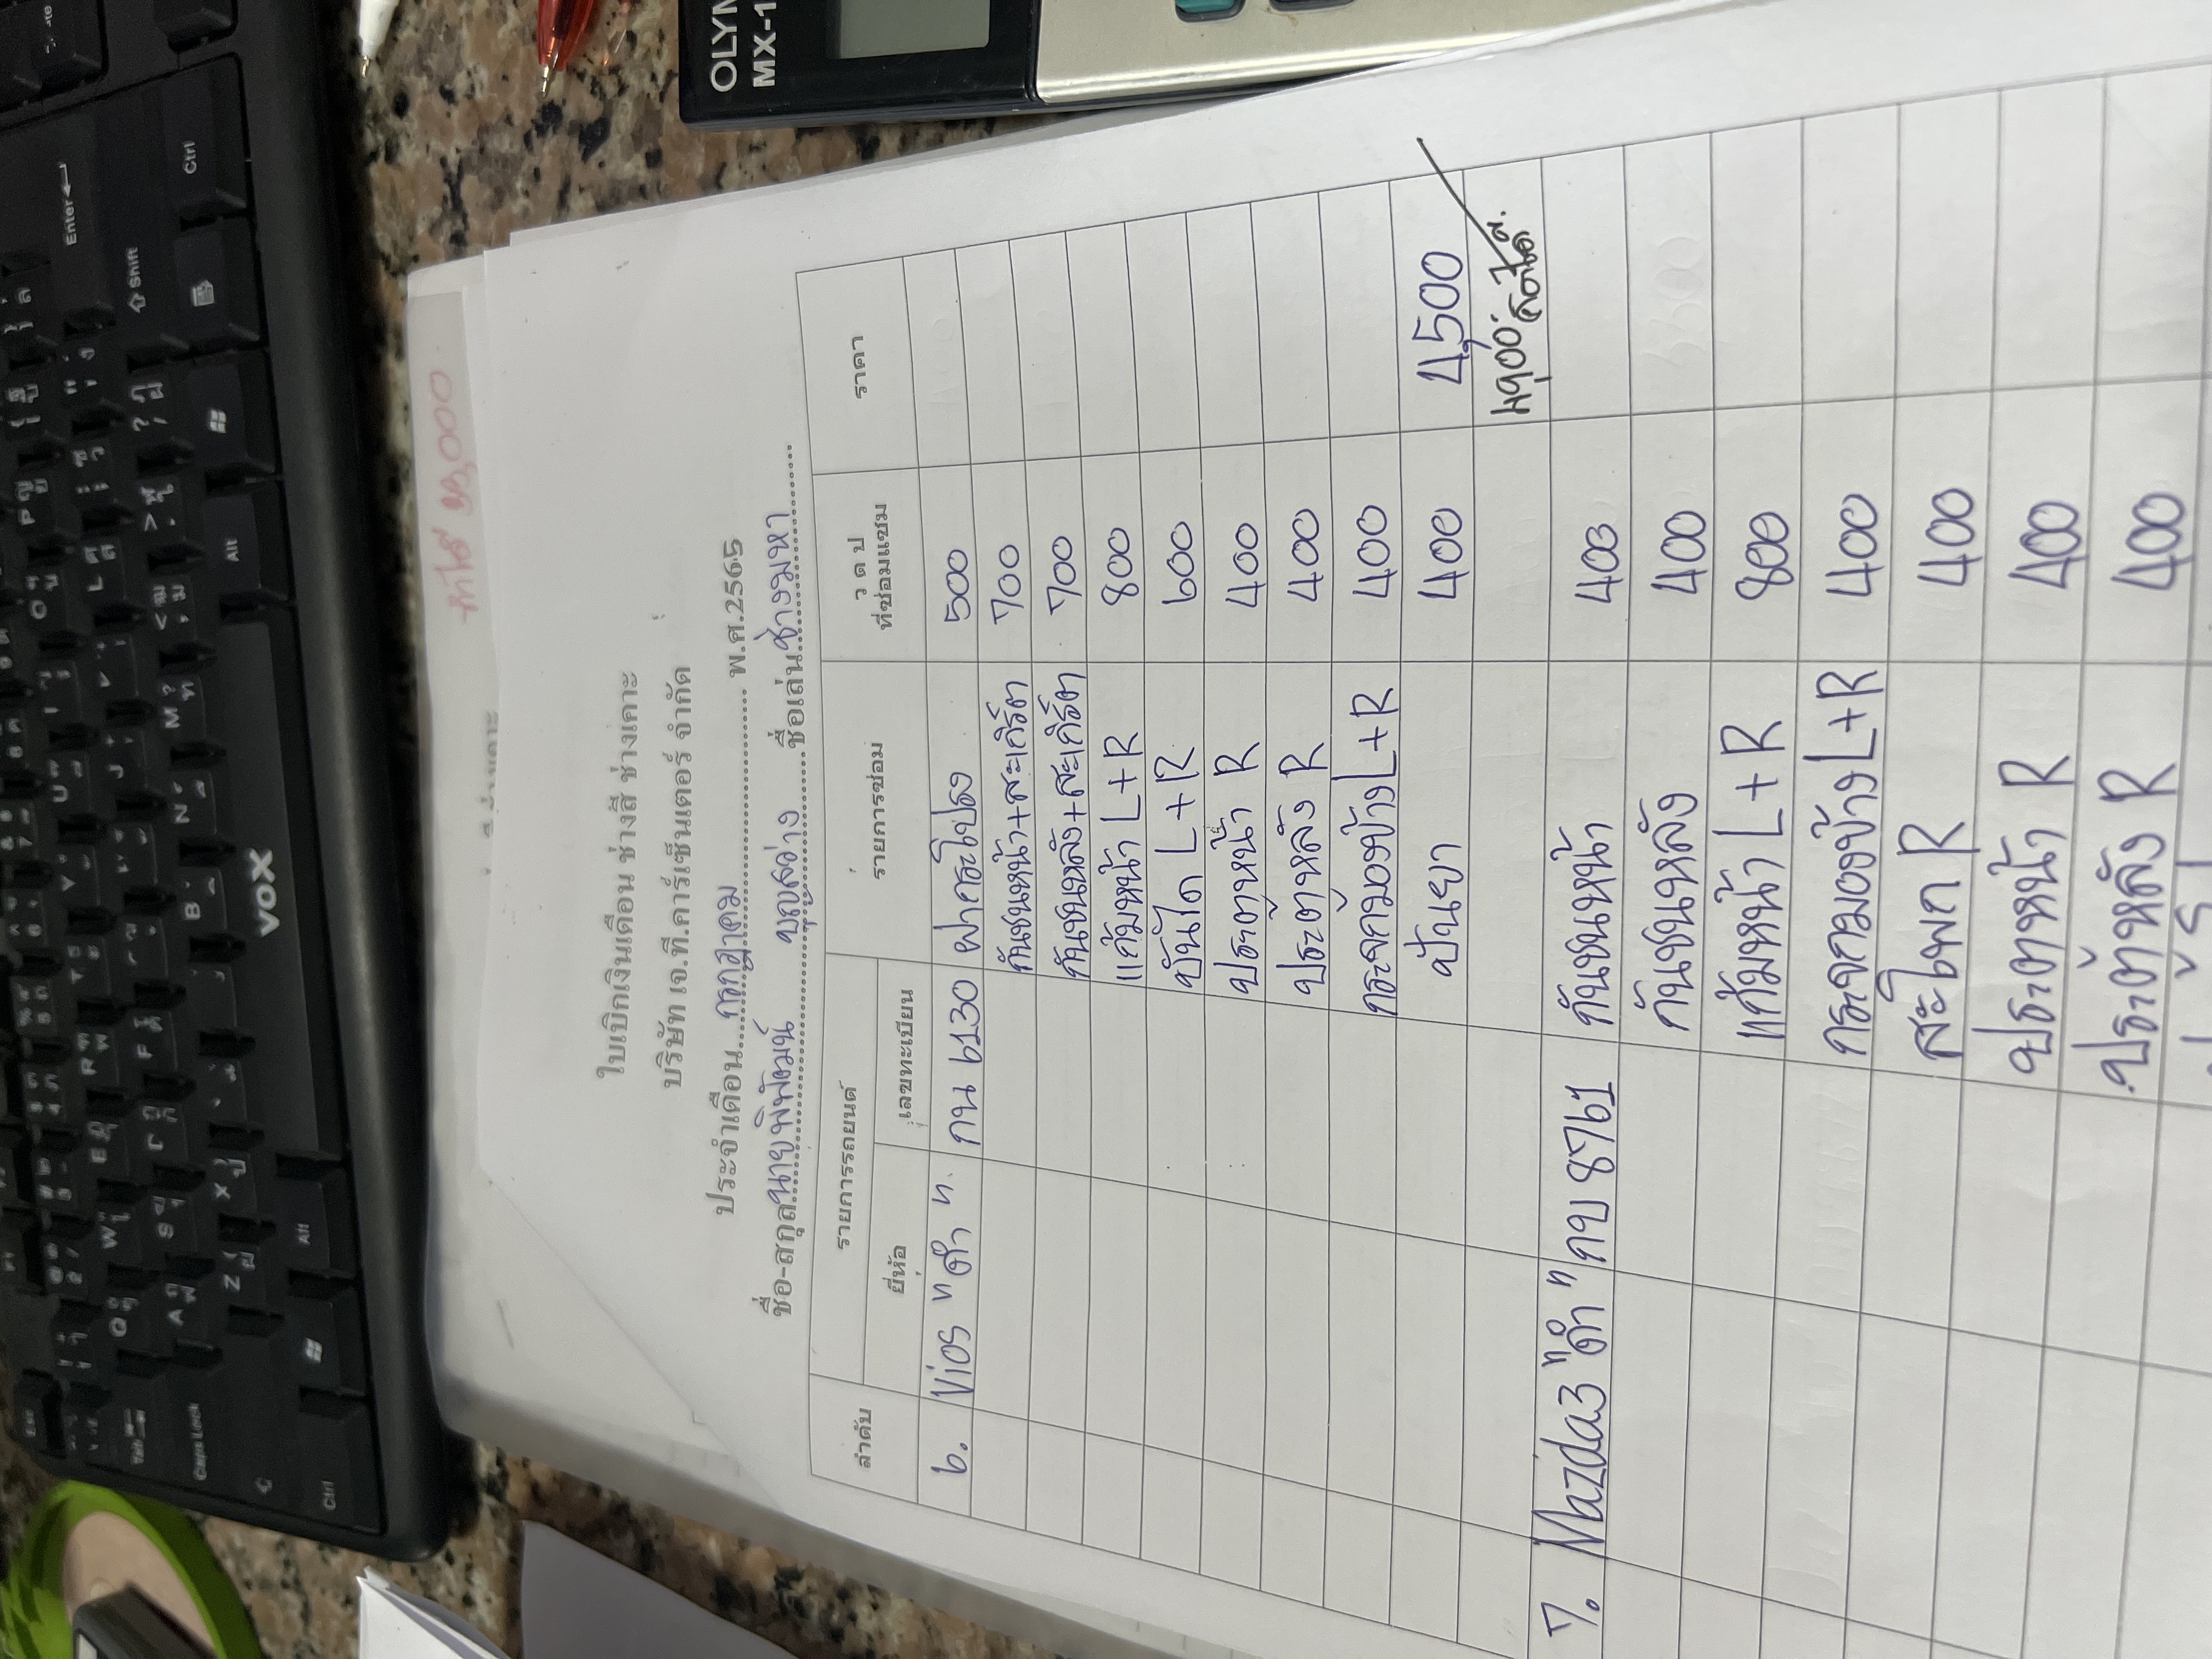 ใบเบิกเงินเดือน ช่างสี ช่างเคาะ
บริษัท เจ.ที.คาร์เซ็นเตอร์ จำกัด
ประจำเดือน....กรกฎาคม.... พ.ศ.2565
ชื่อ-สกุล นายพิพัฒน์ บุญสว่าง ชื่อเล่น ช่างมหา
ลำดับ รายการรถยนต์ รายการซ่อม ว ด ป ที่ซ่อมแซม ราคา
ยี่ห้อ เลขทะเบียน
6. Vios "ดำ" กน 6130 ฝากระโปรง 500
กันชนหน้า+สะเกิร์ต 700
กันชนหลัง+สะเกิร์ต 700
แก้มหน้า L+R 800
บันได L+R 600
ประตูหน้า R 400
ประตูหลัง R 400
กระจกมองข้าง L+R 400
ปั่นยา 400 4,500
4,900.-
7. Mazda3 "ดำ" กบ 8761 กันชนหน้า 400
กันชนหลัง 400
แก้มหน้า L+R 800
กระจกมองข้าง L+R 400
สะโพก R 400
ประตูหน้า R 400
ประตูหลัง R 400
OLYM
MX-1
VOX
Enter
Shift
Ctrl
Alt
Caps Lock
Tab